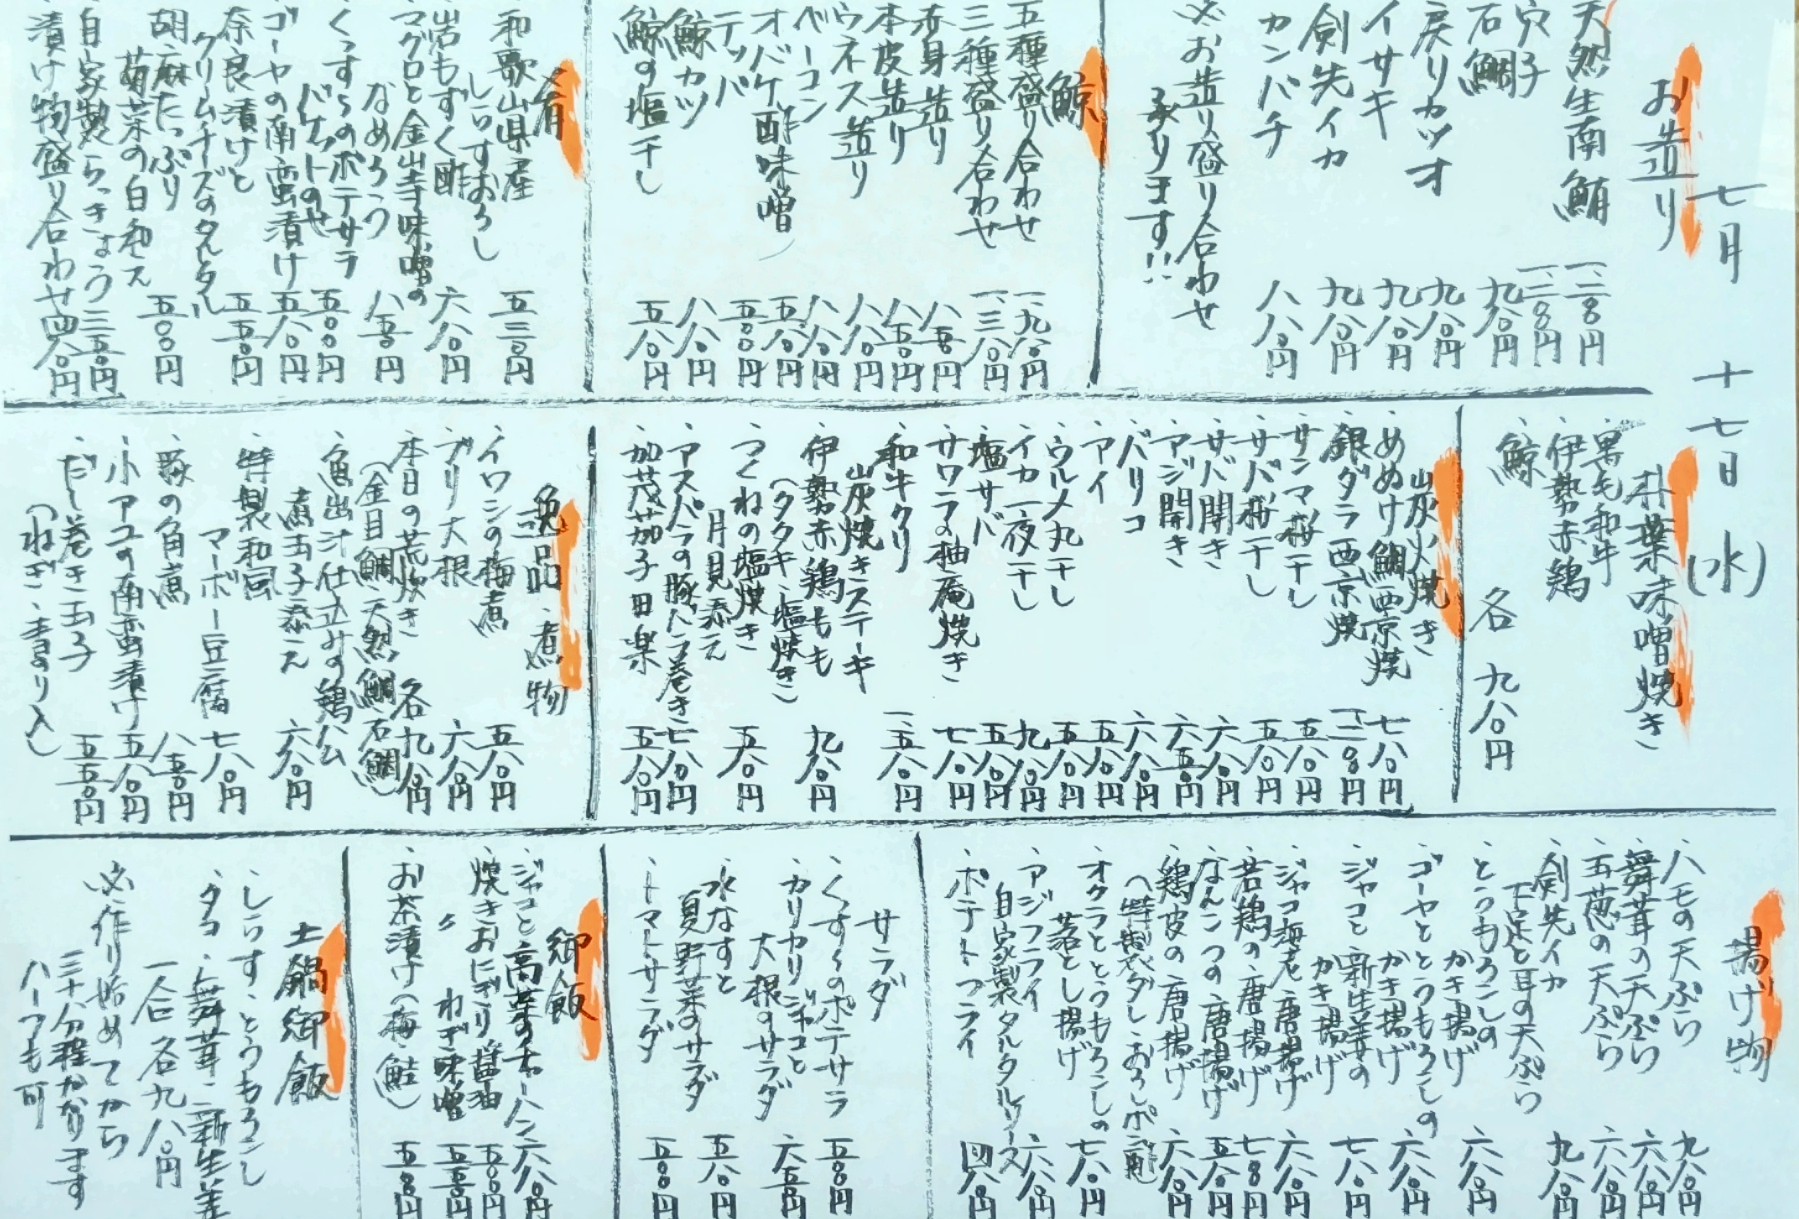 七月 十七日(水)
お造り
天然生南鮪 一二八〇円
穴子 一二八〇円
石鯛 九八〇円
戻りカツオ 九八〇円
イサキ 九八〇円
剣先イカ 九八〇円
カンパチ 八八〇円
必お造り盛り合わせ
承ります!!
鯨
五種盛り合わせ 一、九八〇円
三種盛り合わせ 一、三八〇円
赤身造り 八五〇円
本皮造り 八五〇円
ウネス造り 八八〇円
ベーコン 八八〇円
オバケ酢味噌 五八〇円
テッパ 五〇〇円
鯨カツ 八八〇円
鯨の塩干し 五八〇円
肴
和歌山県産
しらすおろし 五三〇円
岩もずく酢 六八〇円
マグロと金山寺味噌の
なめろう 八五〇円
くっすらのポテサラ
バケットのせ 五〇〇円
ゴーヤの南蛮漬け 五八〇円
奈良漬けと
クリームチーズのタルタル 五五〇円
胡麻たっぷり
菊菜の白和え 五〇〇円
自家製らっきょう 三五〇円
漬け物盛り合わせ 四八〇円
朴葉味噌焼き
、黒毛和牛
、伊勢赤鶏
、鯨
各 九八〇円
炭火焼き
、めぬけ鯛西京焼 七八〇円
、銀ダラ西京焼 一、二八〇円
、サンマ桜干し 五八〇円
、サバ桜干し 五八〇円
、サバ開き 六八〇円
、アジ開き 六五〇円
、バリコ 六八〇円
、アイ 五八〇円
、ウルメ丸干し 五八〇円
、イカ一夜干し 九八〇円
、塩サバ 五八〇円
、サワラの柚庵焼き 七八〇円
、和牛クリ
炭焼きステーキ 一、五八〇円
、伊勢赤鶏もも
(タタキ・塩焼き) 九八〇円
、つくねの塩焼き
月見添え 五八〇円
、アスパラの豚バラ巻き 七八〇円
、加茂茄子田楽 五八〇円
逸品・煮物
、イワシの梅煮 五八〇円
、ブリ大根 六八〇円
、本日の荒炊き 各九八〇円
(金目鯛・天然鯛・石鯛)
、魚出汁仕立みの鶏ハム
煮玉子添え 六八〇円
、特製和風
マーボー豆腐 七八〇円
、豚の角煮 八五〇円
、小アユの南蛮漬け 五八〇円
、だし巻き玉子 五五〇円
(ねぎ・青のり入)
揚げ物
、ハモの天ぷら 九八〇円
、舞茸の天ぷら 六八〇円
、五葱の天ぷら 六八〇円
、剣先イカ
下足と耳の天ぷら 九八〇円
、とうもろこしの
かき揚げ 六八〇円
、ゴーヤととうもろこしの
かき揚げ 六八〇円
、ジャコと新生姜の
かき揚げ 七八〇円
、ジャコ海老唐揚げ 六八〇円
、若鶏の唐揚げ 七八〇円
、なんこつの唐揚げ 五八〇円
、鶏皮の唐揚げ 六八〇円
(特製ダシ・おろしポン酢)
、オクラととうもろこしの
落とし揚げ 七八〇円
、アジフライ
自家製タルタルソース 六八〇円
、ポテトフライ 四八〇円
サラダ
、くずしのポテサラ 五八〇円
、カリカリジャコと
大根のサラダ 六五〇円
、水なすと
夏野菜のサラダ 五八〇円
、トマトサラダ 五八〇円
御飯
、ジャコと高菜のチャーハン 六八〇円
、焼きおにぎり醤油 五〇〇円
、〃 ねぎ味噌 五五〇円
、お茶漬け(梅・鮭) 五八〇円
土鍋御飯
、しらす・とうもろこし
、タコ・舞茸・新生姜
一合 各九八〇円
必作り始めてから
三十分程かかります
ハーフも可